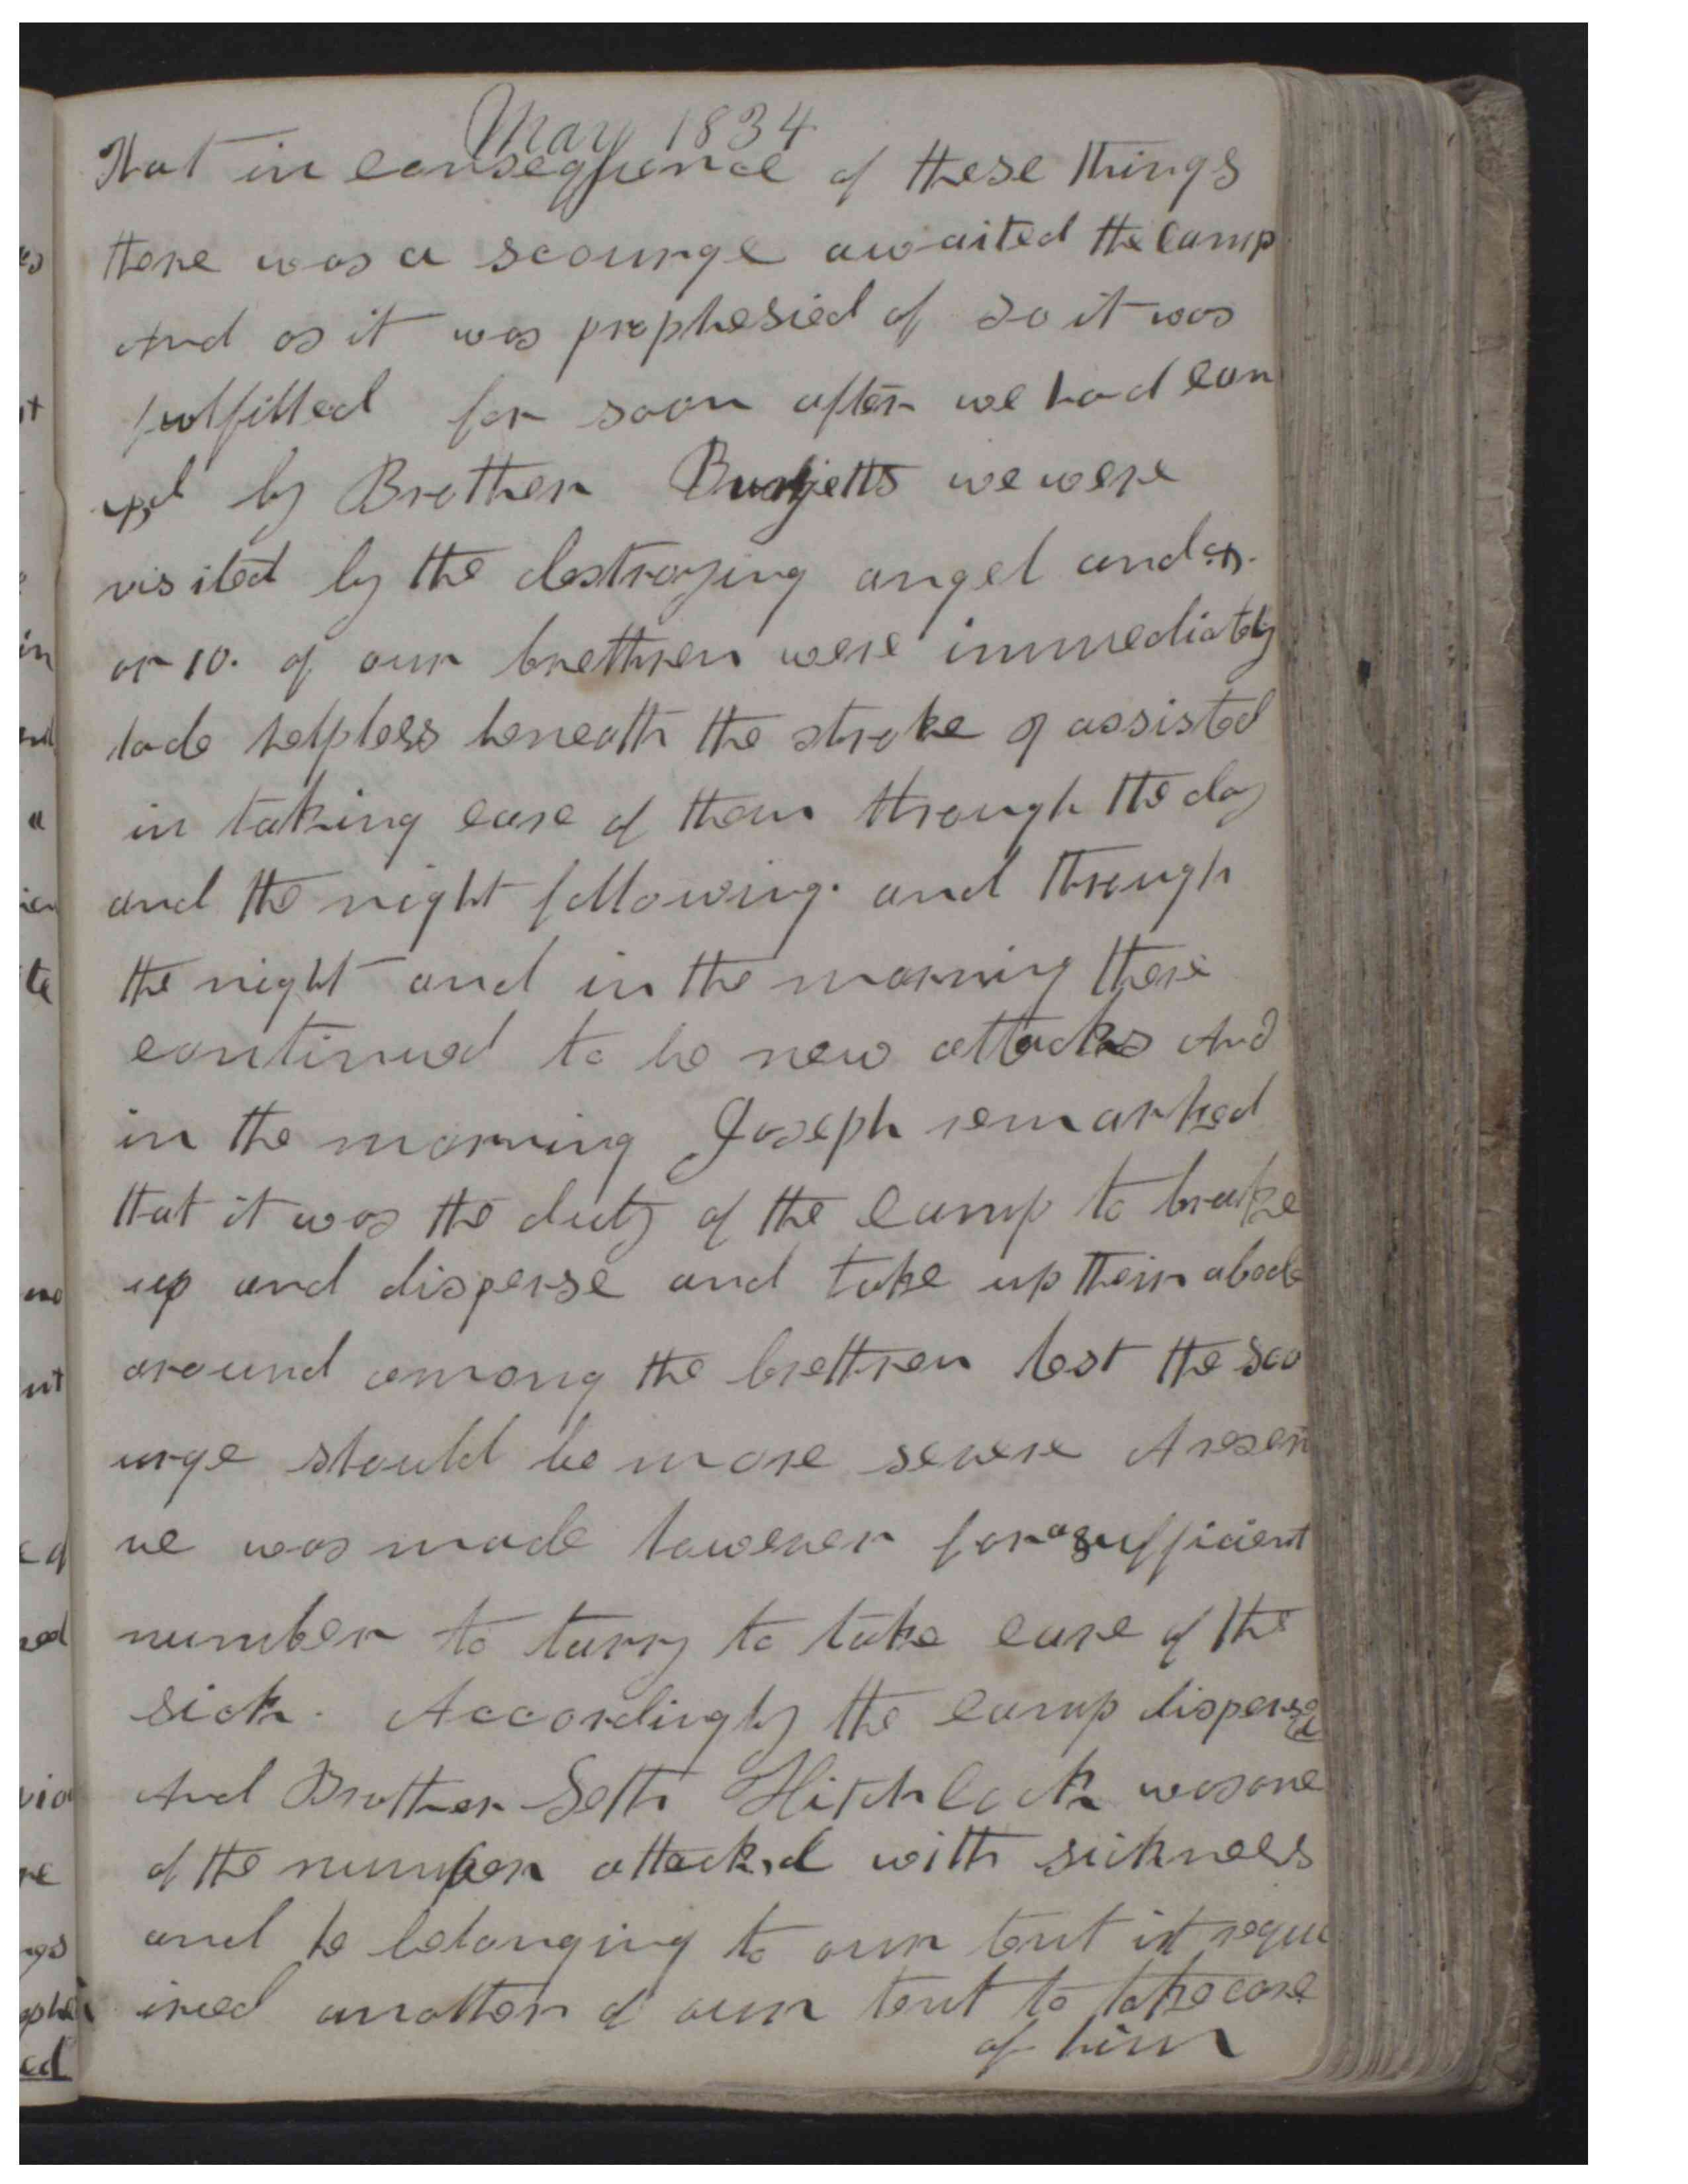 May 1834
That in consequence of these things
there was a scourge awaited the camp
And as it was prophesied of So it was
fulfilled for soon after we had cam
ped by Brother Burjetts we were
visited by the destroying angel and
or 10. of our brethren were immediately
lade helpless beneath the stroke I assisted
in taking care of them through the day
and the night following. and through
the night and in the morning there
continued to be new attacks And
in the morning Joseph remarked
that it was the duty of the camp to brake
up and disperse and take up their abode
around among the brethren lest the sco
urge should be more severe A reser
ve was made however for a sufficient
number to tarry to take care of the
sick. Accordingly the camp dispersed
And Brother Seth Hitchcock was one
of the number attacked with sickness
and he belonging to our tent it requ
ired another of our tent to take care
of him